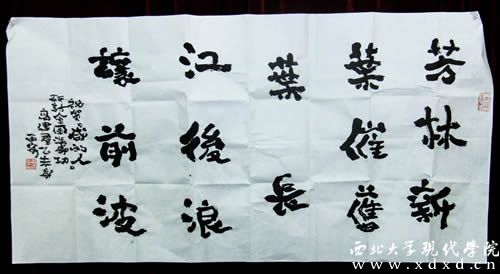 芳林新
葉催舊
葉長
江後浪
讓前波
西北大学现代学院
www.xdxd.cn